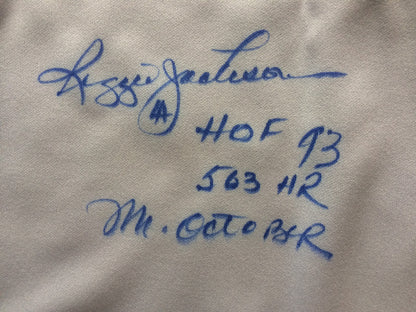 Reggie Jackson
HOF 93
563 HR
Mr. OCTOBER